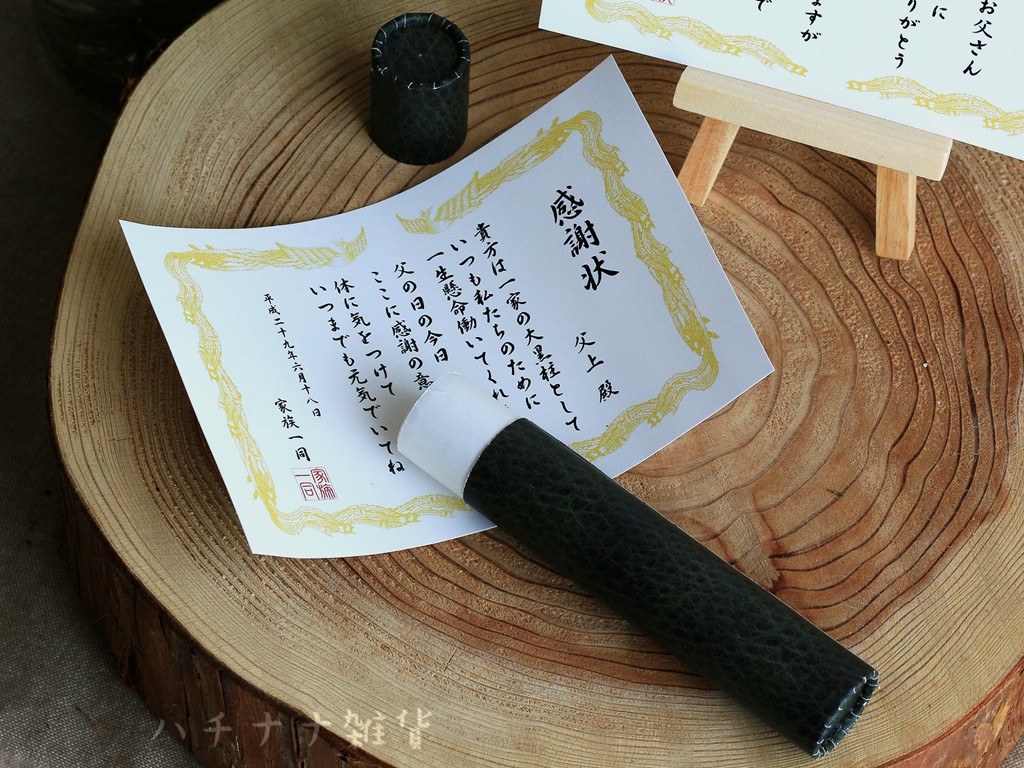 感謝状
父上 殿
貴方は一家の大黒柱として
いつも私たちのために
一生懸命働いてくれ
父の日の今日
ここに感謝の意
体に気をつけて
いつまでも元気でいてね
平成二十九年六月十八日
家族一同
家族
一同
お父さん
に
りがとう
ますが
で
ハチナナ雑貨